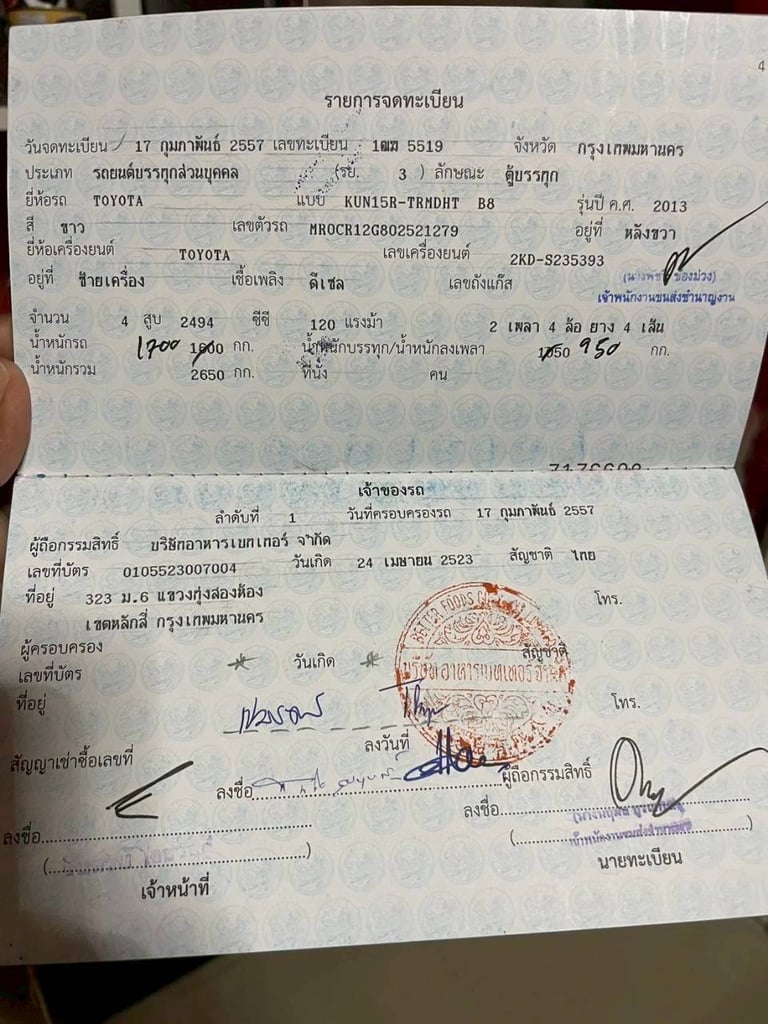 4
รายการจดทะเบียน
วันจดทะเบียน 17 กุมภาพันธ์ 2557 เลขทะเบียน 1ฒฆ 5519 จังหวัด กรุงเทพมหานคร
ประเภท รถยนต์บรรทุกส่วนบุคคล (รย. 3 ) ลักษณะ ตู้บรรทุก
ยี่ห้อรถ TOYOTA แบบ KUN15R-TRMDHT B8 รุ่นปี ค.ศ. 2013
สี ขาว เลขตัวรถ MROCR12G802521279 อยู่ที่ หลังขวา
ยี่ห้อเครื่องยนต์ TOYOTA เลขเครื่องยนต์ 2KD-S235393
อยู่ที่ ซ้ายเครื่อง เชื้อเพลิง ดีเซล เลขถังแก๊ส
เจ้าพนักงานขนส่งชำนาญงาน
จำนวน 4 สูบ 2494 ซีซี 120 แรงม้า 2 เพลา 4 ล้อ ยาง 4 เส้น
น้ำหนักรถ 1700 1600 กก. น้ำหนักบรรทุก/น้ำหนักลงเพลา 1050 950 กก.
น้ำหนักรวม 2650 กก. ที่นั่ง คน
เจ้าของรถ
ลำดับที่ 1 วันที่ครอบครองรถ 17 กุมภาพันธ์ 2557
ผู้ถือกรรมสิทธิ์ บริษัทอาหารเบทเทอร์ จำกัด
เลขที่บัตร 0105523007004 วันเกิด 24 เมษายน 2523 สัญชาติ ไทย
ที่อยู่ 323 ม.6 แขวงทุ่งสองห้อง โทร.
เขตหลักสี่ กรุงเทพมหานคร
BETTER FOODS
บริษัท อาหารเบทเทอร์ จำกัด
ผู้ครอบครอง
เลขที่บัตร * วันเกิด * สัญชาติ
ที่อยู่ โทร.
สัญญาเช่าซื้อเลขที่ ลงวันที่
ลงชื่อ ผู้ถือกรรมสิทธิ์
ลงชื่อ ลงชื่อ
เจ้าหน้าที่ นายทะเบียน